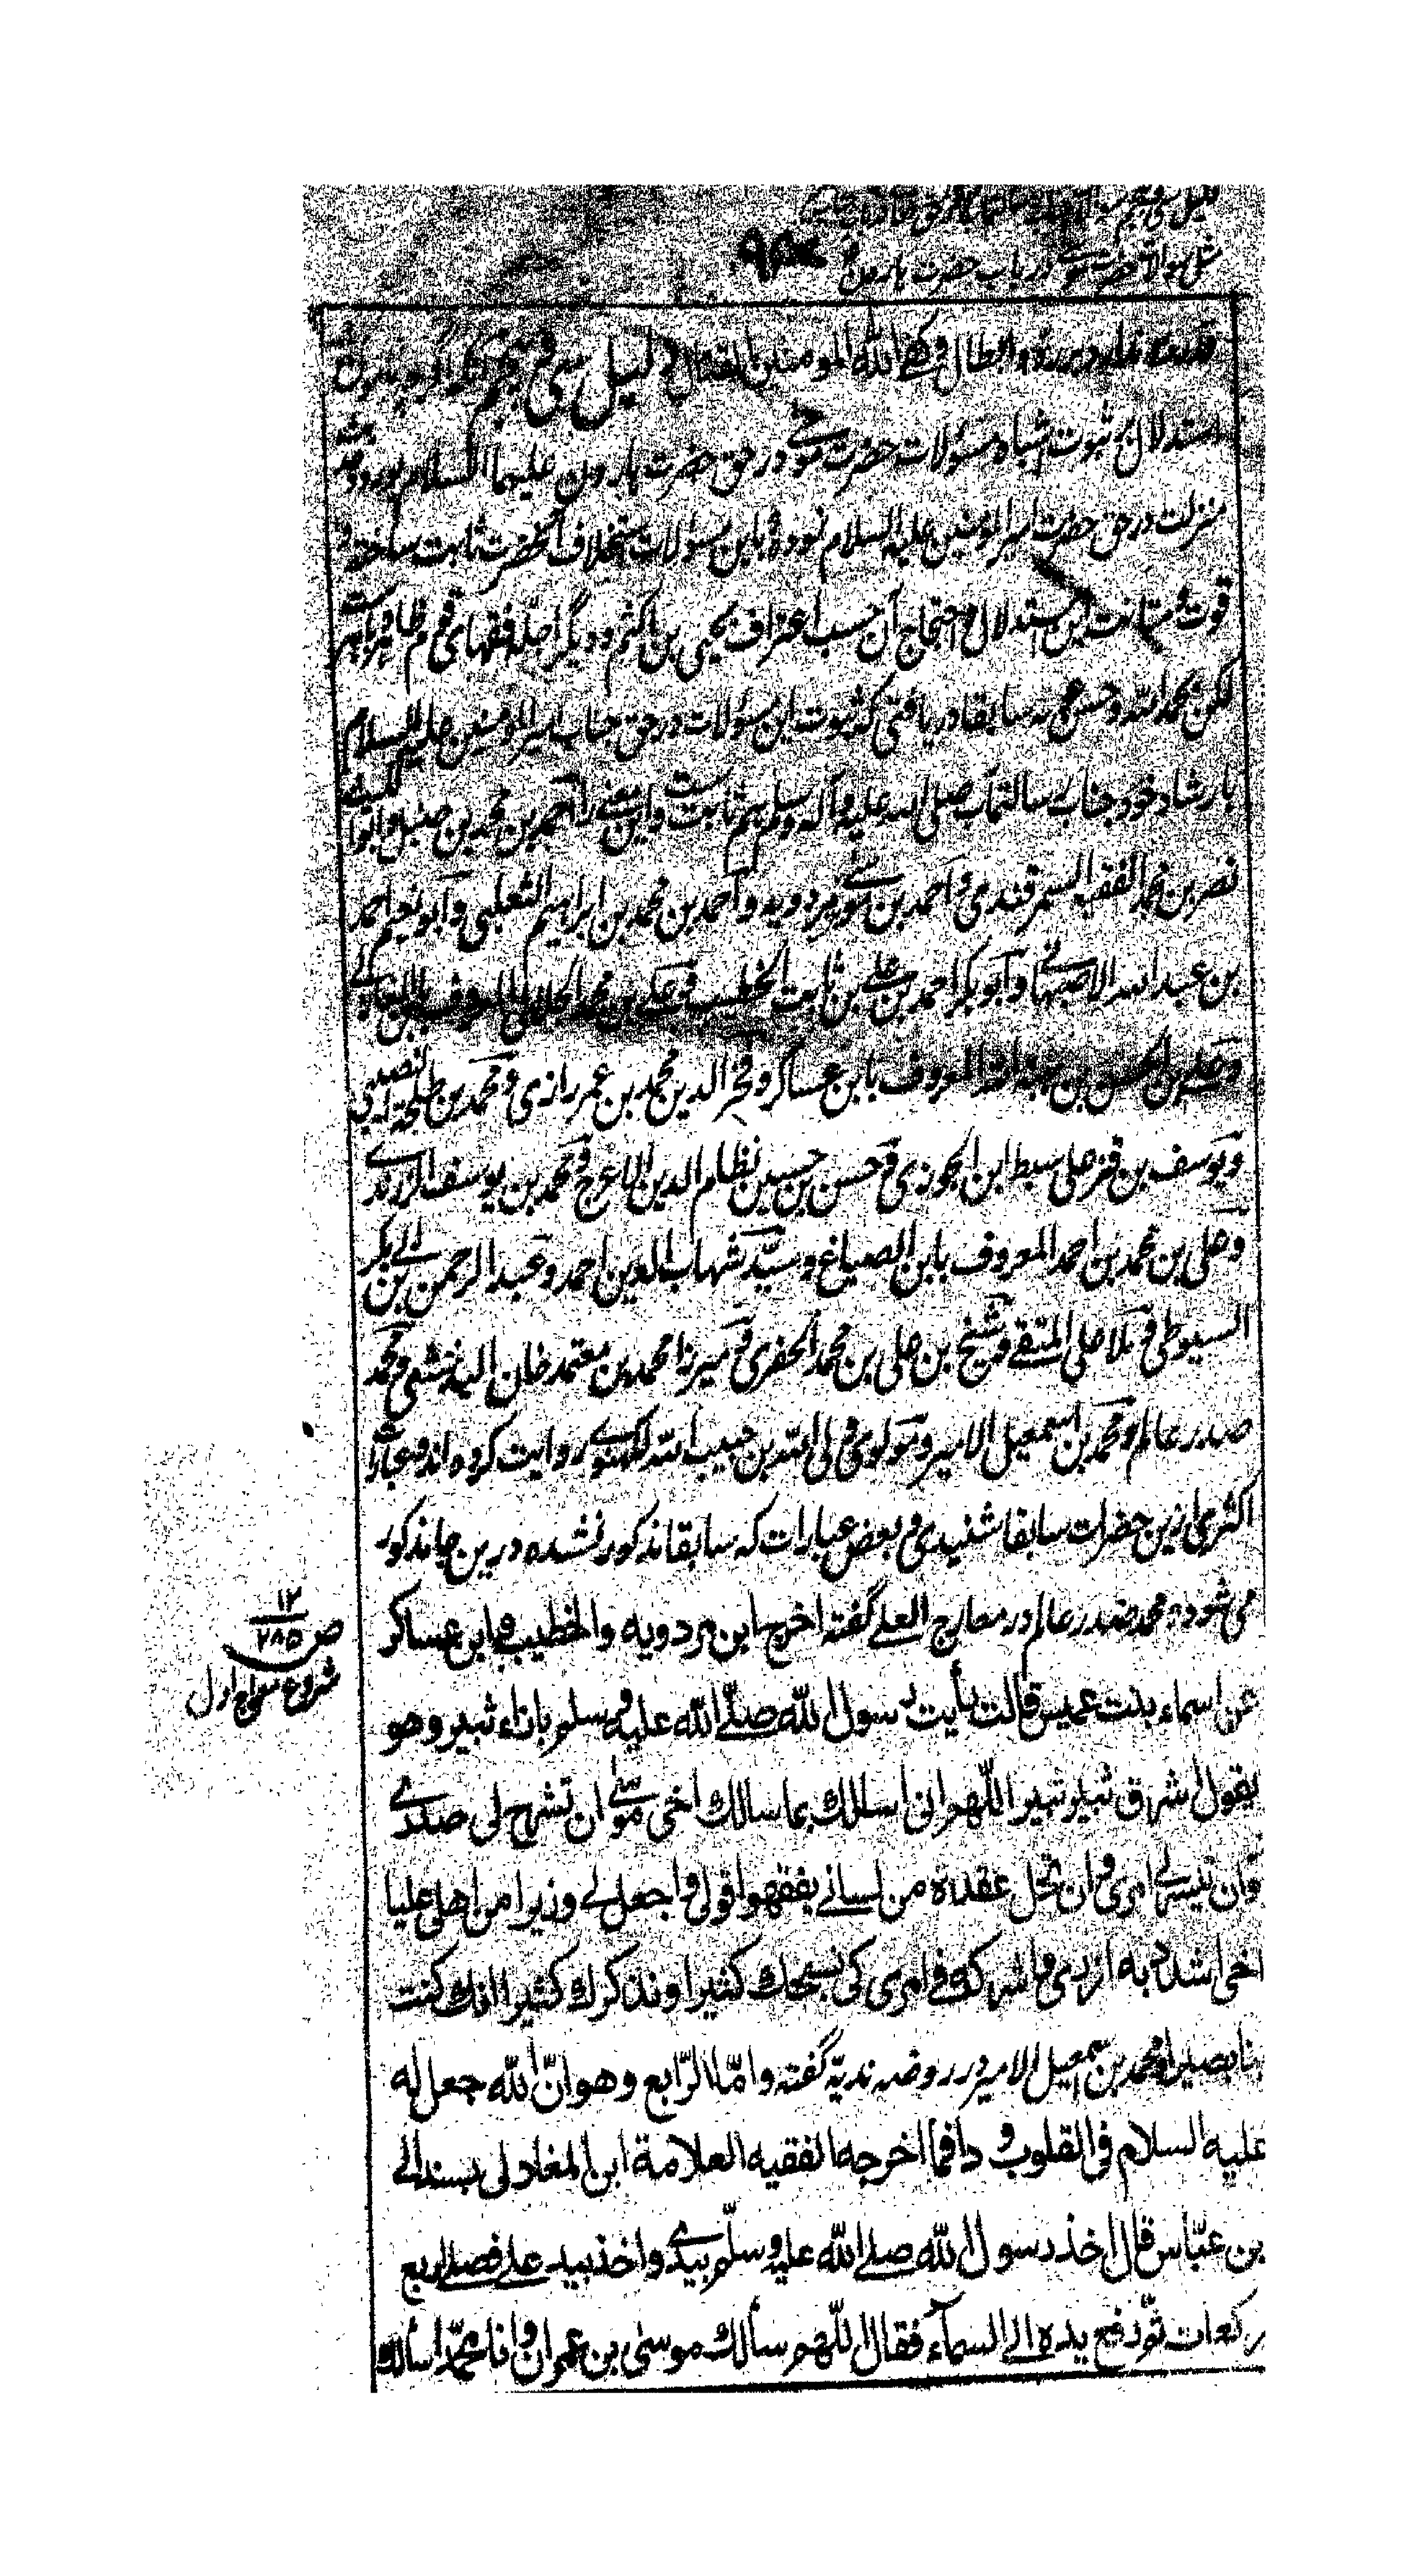 دلیل سی و پنجم
مثل سوالات حضرت موسی در باب حضرت هارون ۹۵۴
و ابطال و کفی الله المومنین القتال دلیل سی و پنجم آنکه
استدلال بر ثبوت اشباه مسؤلات حضرت موسی در حق حضرت هارون علیهما السلام بورود حدیث
منزلت در حق حضرت امیر المؤمنین علیه السلام نموده و باین مسؤلات استخلاف آنحضرت ثابت ساخته و
قوت و متانت این استدلال و احتجاج آن حسب اعتراف یحیی بن اکثم و دیگر اجله فقهای قوم ظاهر و باهر است
لکن بحمد الله و حسن توفیقه سابقا دریافتی که ثبوت این مسؤلات در حق جناب امیر المؤمنین علیه السلام
بارشاد خود جناب رسالتمآب صلی الله علیه و آله و سلم هم ثابت ست و این معنی را احمد بن محمد بن حنبل و ابو اللیث
نصر بن محمد الفقیه السمرقندی و احمد بن موسی بن مردویه و احمد بن محمد بن ابراهیم الثعلبی و ابو نعیم احمد
بن عبد الله الاصبهانی و ابو بکر احمد بن علی بن ثابت الخطیب و علی بن محمد الجلابی المعروف بابن المغازلی
و علی بن الحسن بن هبة الله المعروف بابن عساکر و فخر الدین محمد بن عمر رازی و محمد بن طلحة النصیبی
و یوسف بن قزعلی سبط ابن الجوزی و حسن بن حسین نظام الدین الاعرج و محمد بن یوسف الزرندی
و علی بن محمد بن احمد المعروف بابن الصباغ و سید شهاب الدین احمد و عبد الرحمن بن ابی بکر
السیوطی و ملا علی المتقی و شیخ بن علی بن محمد الجفری و میرزا محمد بن معتمد خان البدخشی و محمد
صدر عالم و محمد بن اسمعیل الامیر و مولوی ولی الله بن حبیب الله لکهنوی روایت کرده اند و عبارات
اکثری ازین حضرات سابقا شنیدی و بعض عبارات که سابقا مذکور نشده درین جا مذکور
می شود محمد صدر عالم در معارج العلی گفته اخرج ابن مردویه والخطیب و ابن عساکر
عن اسماء بنت عمیس قالت رأیت رسول الله صلی الله علیه و سلم بازاء ثبیر و هو
یقول اشرق ثبیر اشرق ثبیر اللهم انی اسالك بما سالك اخی موسی ان تشرح لی صدری
وان تیسر لی امری وان تحل عقدة من لسانی یفقهوا قولی واجعل لی وزیرا من اهلی علیا
اخی اشدد به ازری واشرکه فی امری کی نسبحك کثیرا ونذکرك کثیرا انك کنت
بنا بصیرا و محمد بن اسمعیل الامیر در روضه ندیه گفته واما الرابع وهو ان الله جعل له
علیه السلام فی القلوب ودا فما اخرجه الفقیه العلامة ابن المغازلی بسنده الی
بن عباس قال اخذ رسول الله صلی الله علیه وسلم بیدی واخذ بید علی فصلی اربع
رکعات ثم رفع یده الی السماء فقال اللهم سألك موسی بن عمران وانا محمد اسألك
ص ۱۲/۲۸۵
شروع معراج اول